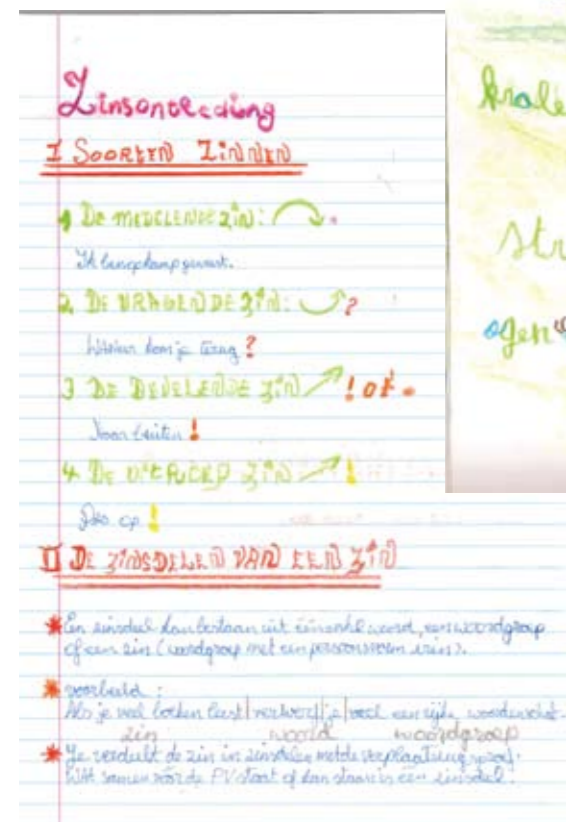 Zinsontleding
I SOORTEN ZINNEN
1 DE MEDELENDE ZIN: .
Ik ben op kamp geweest.
2. DE VRAGENDE ZIN: ?
Wanneer kom je terug?
3 DE BEVELENDE ZIN ! of .
Naar buiten!
4. DE UITROEP ZIN !
op!
II DE ZINSDELEN VAN EEN ZIN
Een zinsdeel kan bestaan uit één enkel woord, een woordgroep
of een zin (woordgroep met een persoonsvorm erin).
voorbeeld:
Als je veel boeken leest | verwerf | je | veel een rijke woordenschat.
zin woord woordgroep
Je verdeelt de zin in zinsdelen met de verplaatsingsproef.
Wat samen vóór de PV staat of kan staan is één zinsdeel.
krale
str
ogen